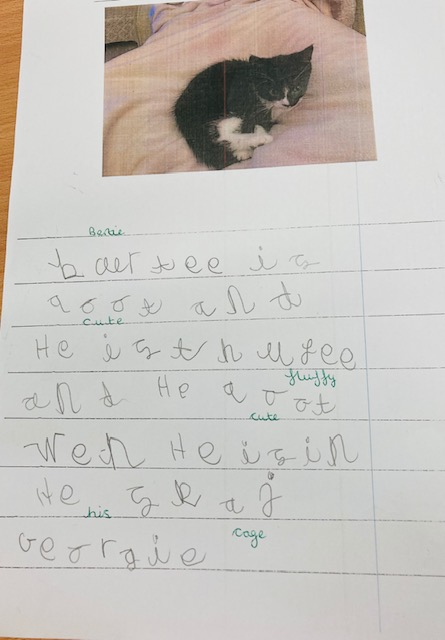 Bertie
baertee is
qoot and
cute
He is thufee
fluffy
and He qoot
cute
Wen He is in
Hes kaj
his cage
Georgie